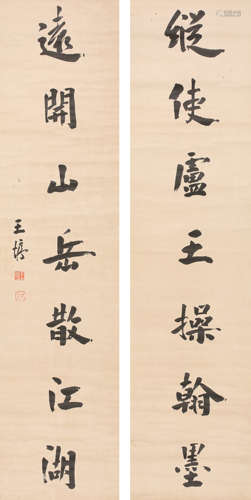 縱使盧王操翰墨
遠開山岳散江湖
王壔